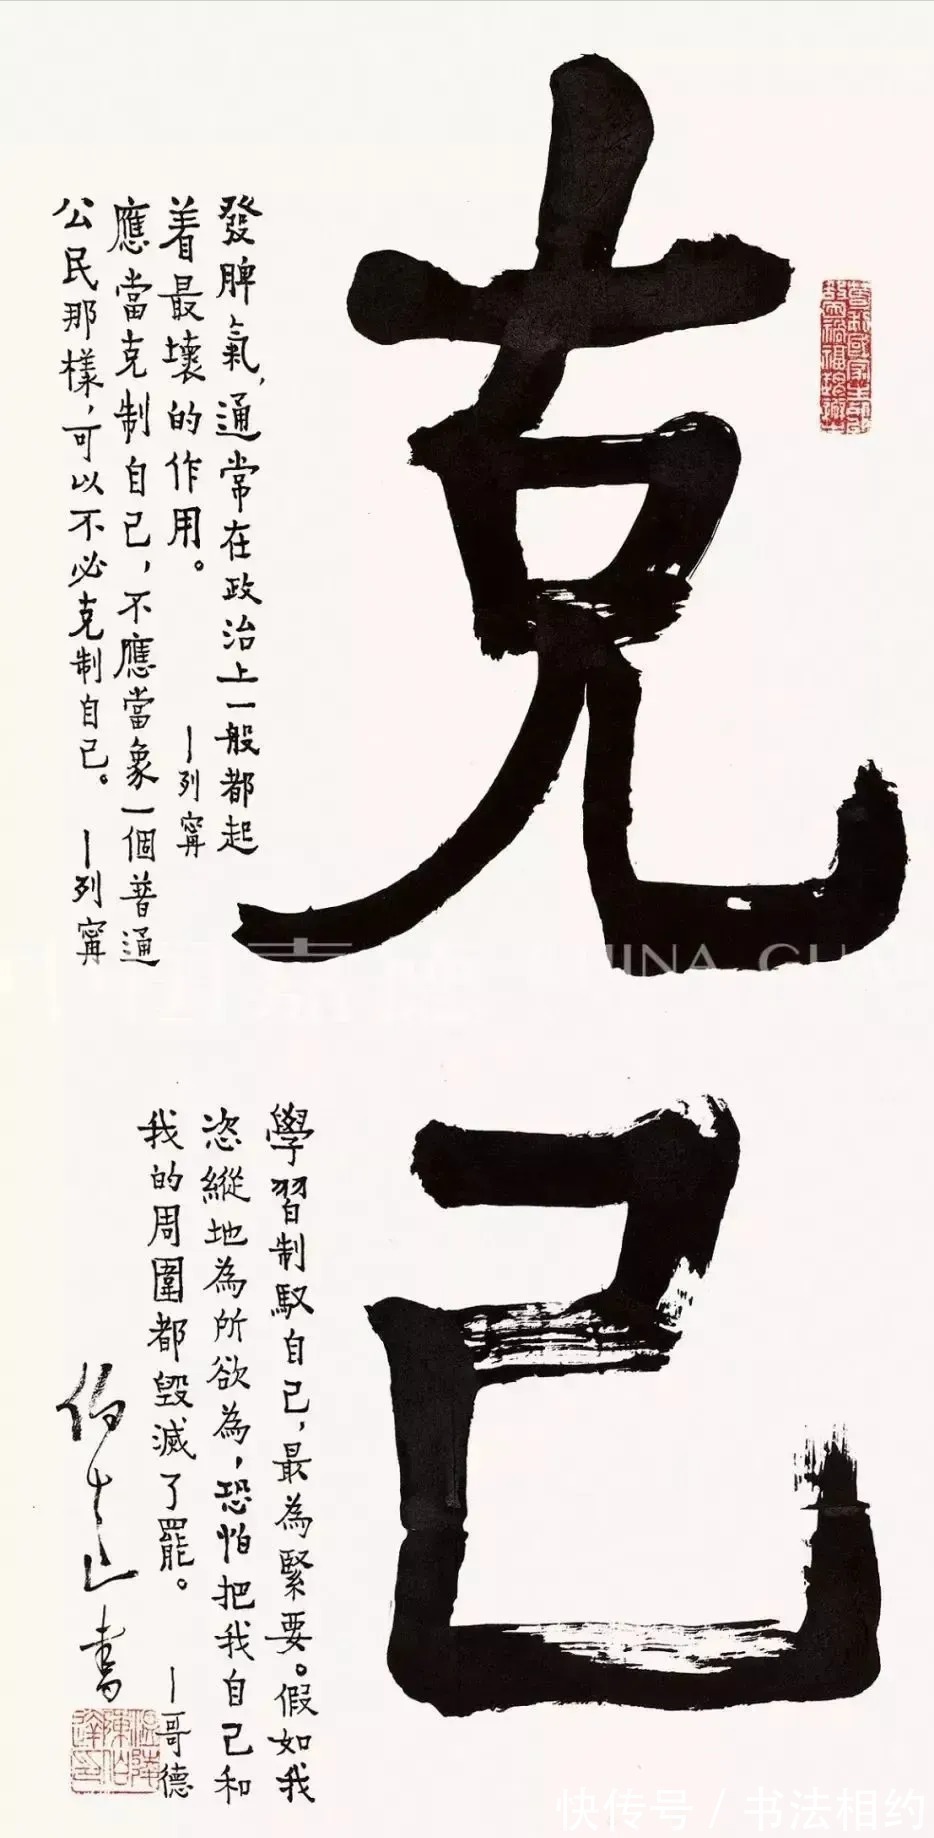 克己
發脾氣，通常在政治上一般都起
着最壞的作用。
—列寧
應當克制自己，不應當象一個普通
公民那樣，可以不必克制自己。
—列寧
學習制馭自己，最為緊要。假如我
恣縱地為所欲為，恐怕把我自己和
我的周圍都毀滅了罷。
—哥德
伯達書
嘉德
快传号 / 书法相约